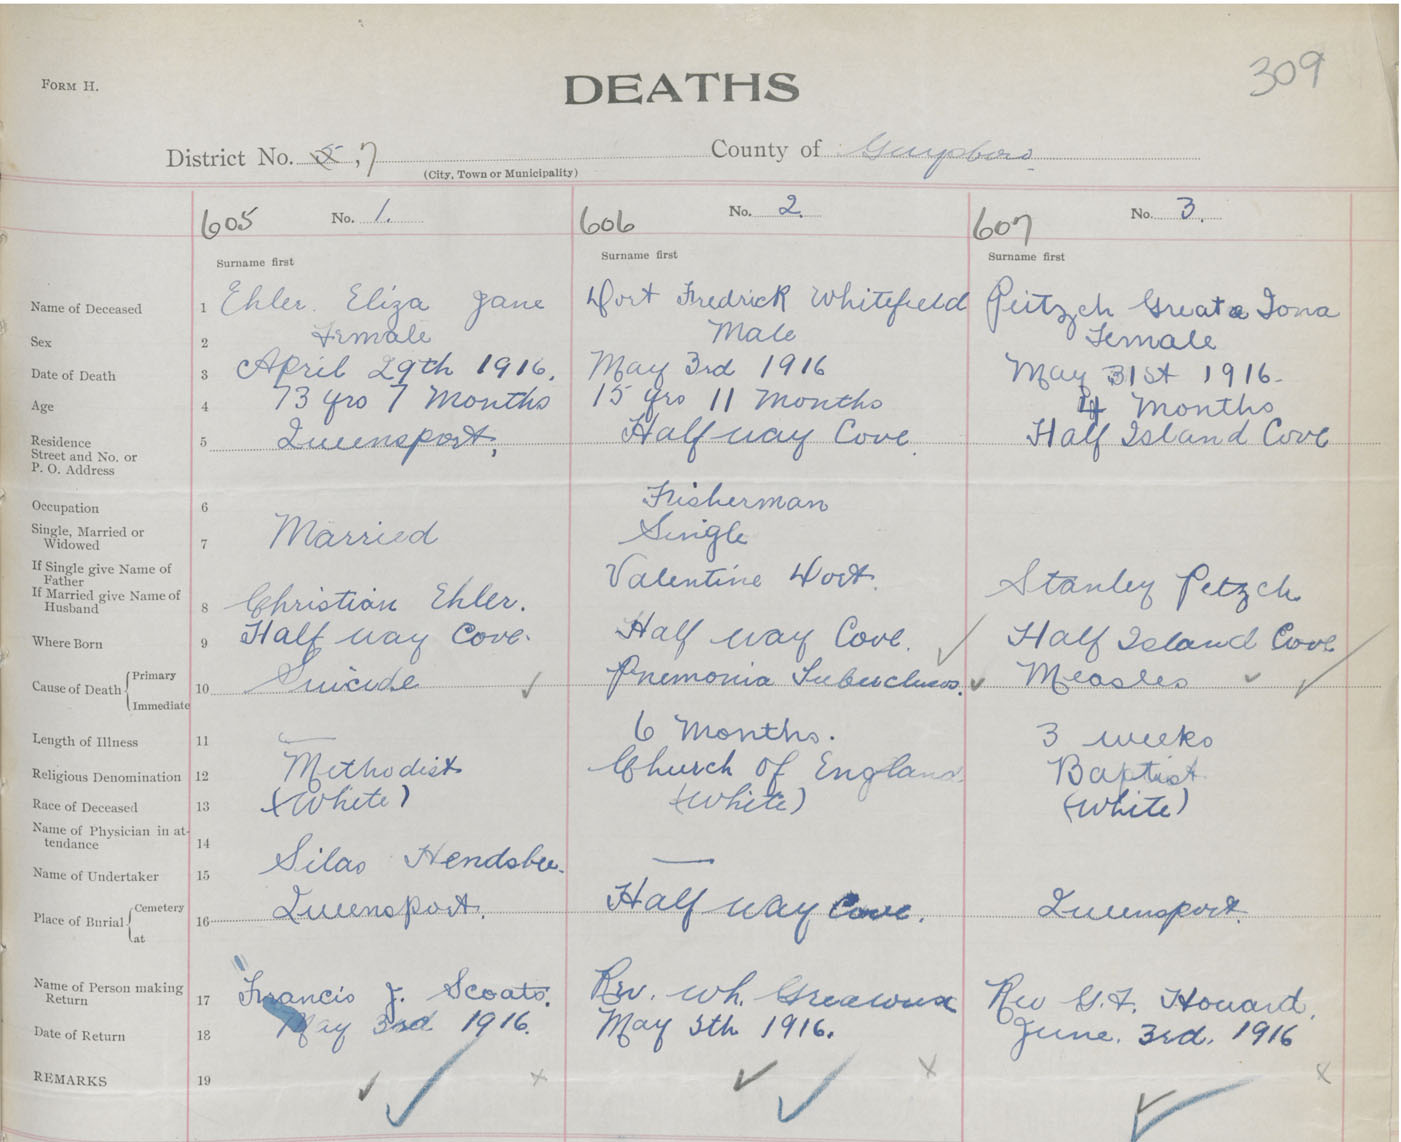 309
FORM H.
DEATHS
District No. 5, 7 County of Guysboro
(City, Town or Municipality)
605 No. 1. 606 No. 2. 607 No. 3.
Surname first Surname first Surname first
Name of Deceased 1 Ehler. Eliza Jane Dort Fredrick Whitefield Peitzch Greata Iona
Sex 2 Female Male Female
Date of Death 3 April 29th 1916. May 3rd 1916 May 31st 1916.
Age 4 73 yrs 7 Months 15 yrs 11 Months 4 Months
Residence Street and No. or P. O. Address 5 Queensport, Half way Cove. Half Island Cove
Occupation 6 Fisherman
Single, Married or Widowed 7 Married Single
If Single give Name of Father Valentine Dort.
If Married give Name of Husband 8 Christian Ehler. Stanley Petzch
Where Born 9 Half way Cove. Half way Cove. Half Island Cove
Cause of Death Primary Immediate 10 Suicide Pnemonia Tuberclueos. Measles
Length of Illness 11 — 6 Months. 3 weeks
Religious Denomination 12 Methodist Church of England Baptist
Race of Deceased 13 (White) (White) (White)
Name of Physician in attendance 14
Name of Undertaker 15 Silas Hendsbee. —
Place of Burial Cemetery at 16 Queensport. Half way Cove. Queensport.
Name of Person making Return 17 Francis J. Scoats. Rev. Wh. Rev G.F. Howard.
Date of Return 18 May 3rd 1916. May 5th 1916. June. 3rd. 1916
REMARKS 19 x x x